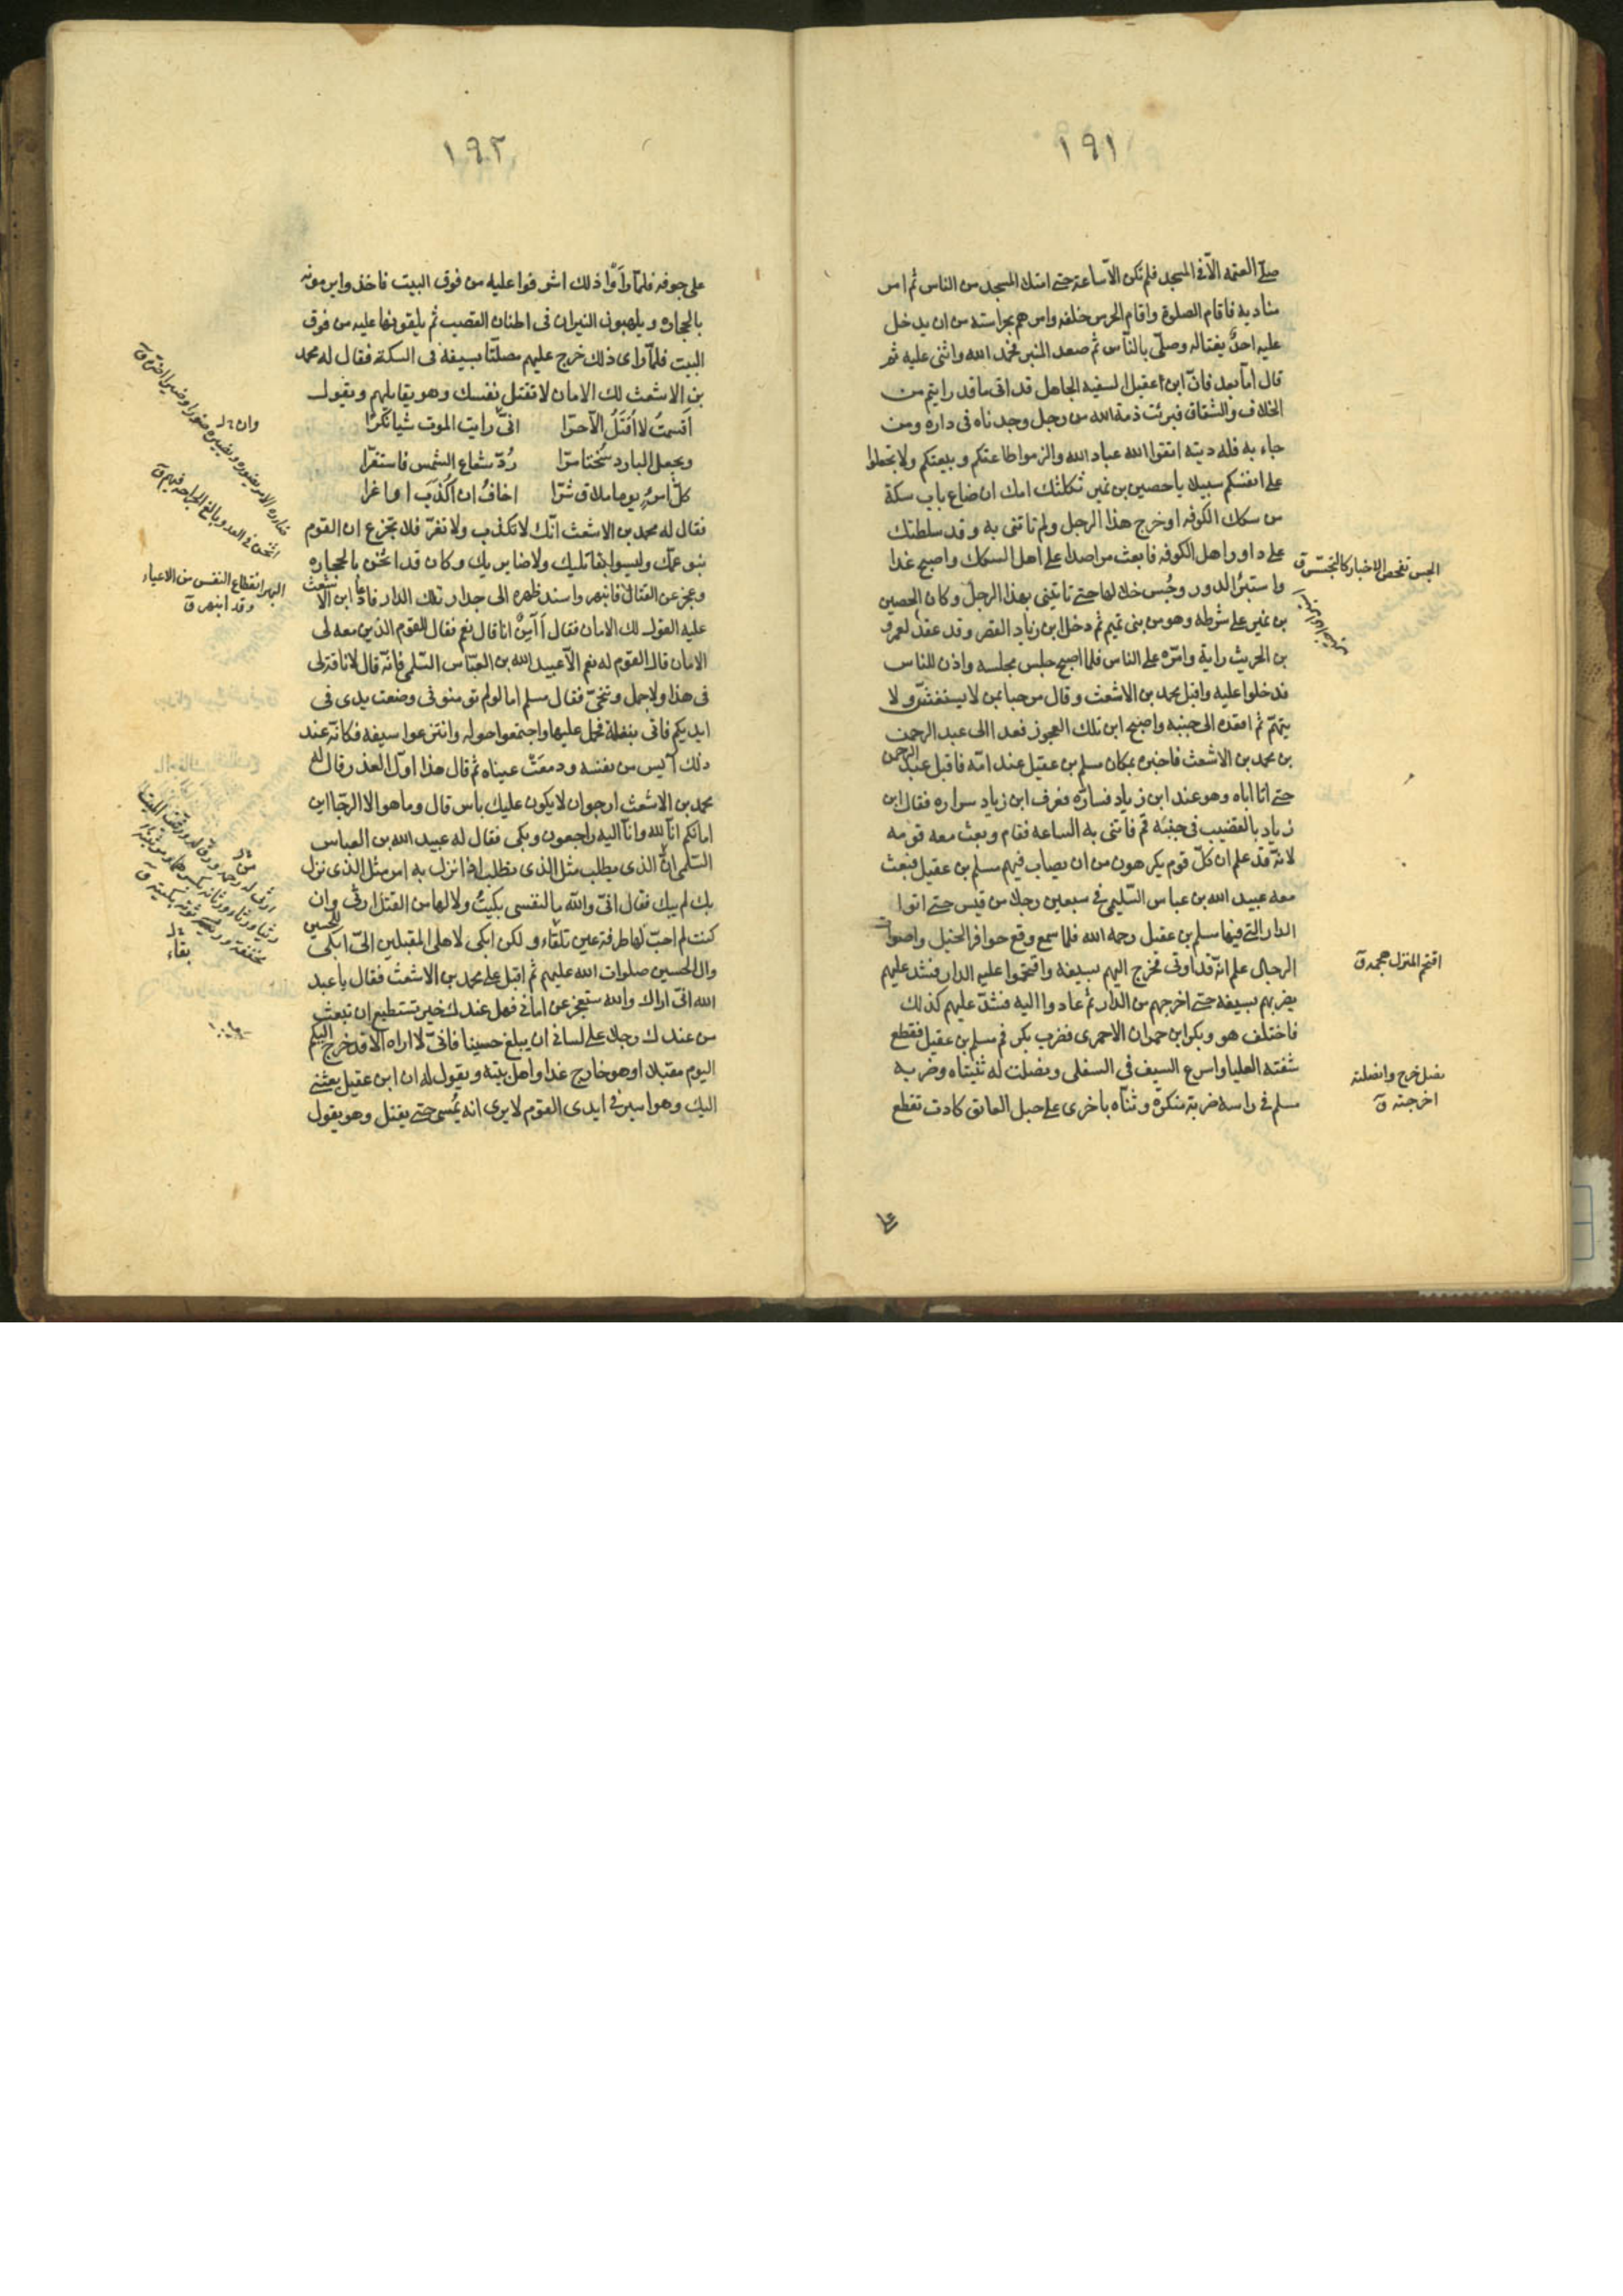 ١٩١
صلى العتمه الّا فى المسجد فلم تكن الّا ساعة حتى امتلا المسجد من الناس ثم امر
مناديه فاقام الصلوة واقام الحرس خلفه وامرهم بحراسته من ان يدخل
عليه احدٌ يغتاله وصلّى بالنّاس ثم صعد المنبر فحمد الله واثنى عليه ثم
قال امّا بعد فانّ ابن عقيل السفيه الجاهل قد اتى ما قد رايتم من
الخلاف والشقاق فبرئت ذمة الله من رجل وجدناه فى داره ومن
جاء به فله ديته اتقوا الله عباد الله والزموا طاعتكم وبيعتكم ولا تجعلوا
على انفسكم سبيلا يا حصين بن نمير ثكلتك امك ان ضاع باب سكة
من سكك الكوفه او خرج هذا الرجل ولم تاتنى به وقد سلطتك
على دور اهل الكوفه فابعث مراصدا على اهل السكك واصبح غدا
واستبرئ الدور وجُس خلالها حتى تاتينى بهذا الرجل وكان الحصين
بن نمير على شرطه وهو من بنى تميم ثم دخل ابن زياد القصر وقد عقد لعمرو
بن الحريث راية وامّره على الناس فلما اصبح جلس مجلسه واذن للناس
فدخلوا عليه واقبل محمد بن الاشعث وقال مرحبا بمن لا يستغشّ ولا
يتهم ثم اقعده الى جنبه واصبح ابن تلك العجوز فغدا الى عبد الرحمن
بن محمد بن الاشعث فاخبره بمكان مسلم بن عقيل عند امّه فاقبل عبد الرحمن
حتى اتا اباه وهو عند ابن زياد فسارّه فعرف ابن زياد سراره فقال ابن
زياد بالقضيب فى جنبه قم فاتنى به الساعه فقام وبعث معه قومه
لانّه قد علم ان كلّ قوم يكرهون من ان يصاب فيهم مسلم بن عقيل فبعث
معه عبيد الله بن عباس السّليمى فى سبعين رجلا من قيس حتى اتوا
الدار التى فيها مسلم بن عقيل رحمه الله فلما سمع وقع حوافر الخيل واصوات
الرجال علم انّه قد اوتى فخرج اليهم بسيفه واقتحموا عليه الدار فشد عليهم
يضربهم بسيفه حتى اخرجهم من الدار ثم عادوا اليه فشدّ عليهم كذلك
فاختلف هو وبكر ابن حمران الاحمرى فضرب بكر فم مسلم بن عقيل فقطع
شفته العليا واسرع السيف فى السفلى ونصلت له ثنيتاه وضربه
مسلم فى راسه ضربة منكرة وثنّاه باخرى على حبل العاتق كادت تقطع
الجس تفحص الاخبار كالتجسّس ق
اقتحم المنزل هجمه ق
نصل خرج وانصلته
اخرجته ق
على
١٩٢
على جوفه فلمّا راَوْا ذلك اشرفوا عليه من فوق البيت فاخذوا يرمونه
بالحجاره ويلهبون النيران فى اطنان القصب ثم يلقونها عليه من فوق
البيت فلمّا راى ذلك خرج عليهم مصلتًا بسيفه فى السكة فقال له محمد
بن الاشعث لك الامان لا تقتل نفسك وهو يقاتلهم ويقول
اَقسمتُ لا اُقتَلُ الّا حرّا انّى رايت الموت شيا نكرًا
ويجعل البارد سُخنا مرّا رُدّ شعاع الشمس فاستقرّا
كلّ امرءٍ يوما ملاق شرّا اخافُ ان اُكذَب او اغرا
فقال له محمد بن الاشعث انّك لا تكذب ولا تغرّ فلا تجزع ان القوم
بنو عمّك وليسوا بقاتليك ولا ضايريك وكان قد اثخن بالحجاره
وعجز عن القتال فانبهر واسند ظهره الى جدار تلك الدار فاعاد ابن الاشعث
عليه القول لك الامان فقال أآمِنٌ انا قال نعم فقال للقوم الذين معه لى
الامان قال القوم له نعم الّا عبيد الله بن العبّاس السّلمى فانّه قال لا ناقة لى
فى هذا ولا جمل وتنحّى فقال مسلم اما لو لم تومنونى وضعت يدى فى
ايديكم فاتى ببغلة فحمل عليها واجتمعوا حوله وانتزعوا سيفه فكانّه عند
ذلك آيس من نفسه ودمعَتْ عيناه ثم قال هذا اوّل الغدر وقال له
محمد بن الاشعث ارجو ان لا يكون عليك باس قال وما هو الا الرجّا اين
امانكم انّا لله وانّا اليه راجعون وبكى فقال له عبيد الله بن العباس
السّلمى انّ الذى يطلب مثل الذى تطلب اذا نزل به امر مثل الذى نزل
بك لم يبك فقال انّى والله ما لنفسى بكيتُ ولا لها من القتل ارثى وان
كنت لم احبّ لها طرفة عين تلقاء ولكن ابكى لاهلى المقبلين الىّ ابكى للحسين
وال الحسين صلوات الله عليهم ثم اقبل على محمد بن الاشعث فقال يا عبد
الله انّى اراك والله ستعجز عن امانى فهل عندك خير تستطيع ان تبعث
من عندك رجلا على لسانى ان يبلغ حسينا فانّى لا اراه الّا قد خرج اليكم
اليوم مقبلا او هو خارج غدا واهل بيته ويقول له ان ابن عقيل بعثنى
اليك وهو اسير فى ايدى القوم لا يرى انه يُمسى حتى يقتل وهو يقول
اثخن فى العدو بالغ الجراحه فيهم ق
البهر انقطاع النفس من الاعياء
وقد انبهر ق